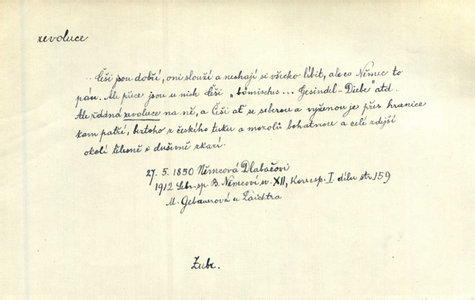 revoluce
... Češi jsou dobří, oni slouží a nechají si všecko líbit, ale co Němec to
pán. Ale přece jsou u nich Češi „bömisches ... Gesindel - Diebe" atd.
Ale řádná revoluce na ně, a Češi ať se seberou a vyženou je přes hranice
kam patří, brzo z českého tuku a mozolů bohatnou a celé zdejší
okolí tělesně i duševně zkazí.
27. 5. 1850 Němcová Dlabačovi
1912 Sebr. sp. B. Němcové sv. XII, Koresp. I. dílu str. 159
M. Gebauerová u Laichtra
Zubr.